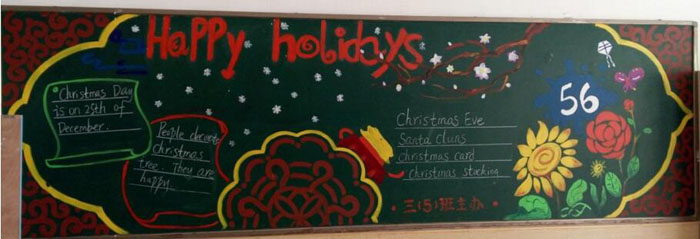 Happy holidays
Christmas Day
is on 25th of
December.
People decorate
christmas
tree. They are
happy.
Christmas Eve
Santa Claus
christmas card
christmas stocking
56
三(5)班主办